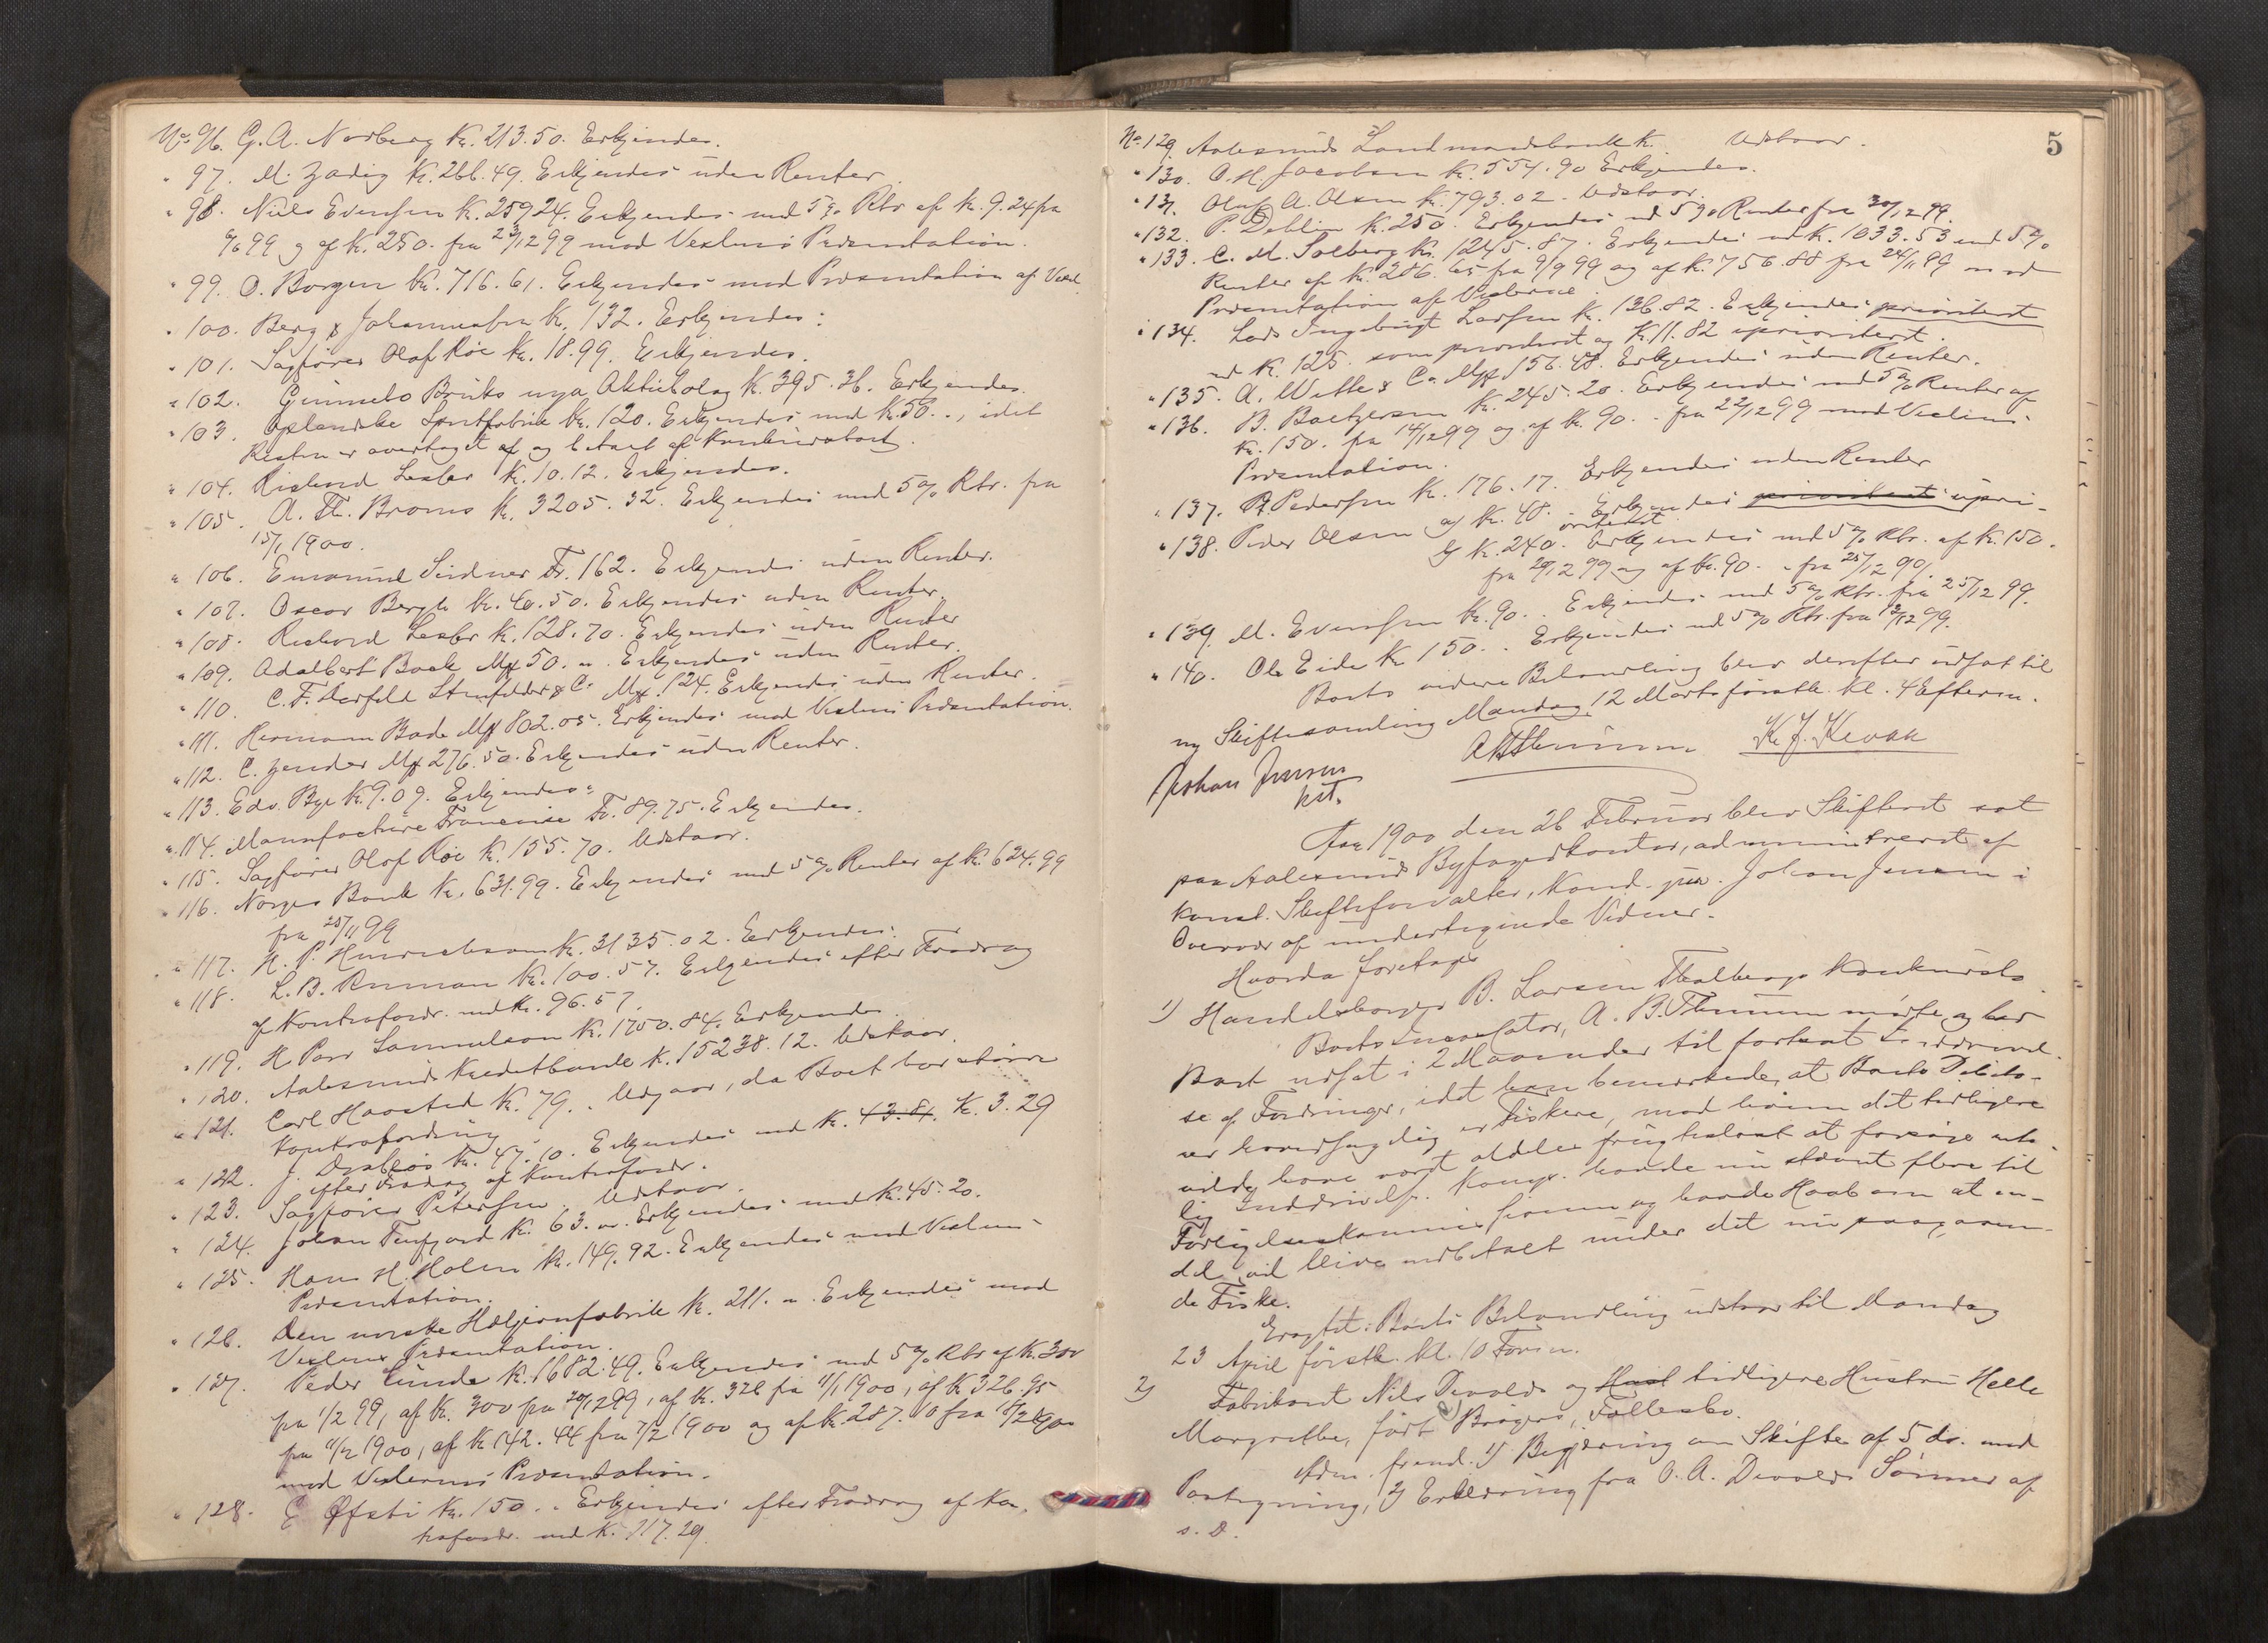 No 96. G. A. Norberg Kr. 213.50. Erkjendes.
" 97. M. Zadig Kr. 266.49. Erkjendes uden Renter.
" 98. Niels Evensen Kr. 259 24. Erkjendes med 5% Rtr af Kr. 9.24 fra
6/6 99 og af Kr. 250. fra 23/12 99 mod Vexlens Præsentation.
" 99. O. Borgen Kr. 716.61. Erkjendes mod Præsentation af Vexl.
" 100. Berg & Johannessen Kr. 132. Erkjendes:
" 101. Sagfører Olaf Röe Kr. 18.99. Erkjendes.
" 102. Gimmebo Bruks nya Aktiebolag Kr. 395.36. Erkjendes.
" 103. Oplandske Spritfabrik Kr. 120. Erkjendes med Kr. 50.., idet
Resten er overtaget af og betalt af
" 104. Richard Lesler Kr. 10.12. Erkjendes.
" 105. A. Th. Broms Kr. 3205.32. Erkjendes med 5% Rtr. fra
15/1 1900.
" 106. Emanuel Lindner Fr. 162. Erkjendes uden Renter.
" 107. Oscar Bergh Kr. 40.50. Erkjendes uden Renter.
" 108. Richard Lesler Kr. 128.70. Erkjendes uden Renter
" 109. Adalbert Back Mk 50. " Erkjendes uden Renter.
" 110. C. F. & Co Mk. 124. Erkjendes uden Renter.
" 111. Hermann Bade Mk 802.05. Erkjendes mod Vexlens Præsentation.
" 112. C. Zender Mk 276.50. Erkjendes uden Renter.
" 113. Edv. Bye Kr. 9.09. Erkjendes:
" 114. Manufacture Francaise Fr. 89.75. Erkjendes.
" 115. Sagfører Olof Röe Kr. 155.70. Udstaar.
" 116. Norges Bank Kr. 631.99. Erkjendes med 5% Renter af Kr. 624.99
fra 25/11 99
" 117. H. P. Kr. 3135.02. Erkjendes.
" 118. L. B. Kr. 100.57. Erkjendes efter Fradrag
af Kontrafordr. med Kr. 96.57.
" 119. H. Parr Samuelson Kr. 1750.84. Erkjendes.
" 120. Aalesunds Kreditbank Kr. 15238.12. Udstaar.
" 121. Carl Haasted Kr. 79. . Udgaar, da Boet har större
Kontrafordring
" 122. J. Kr. 47.10. Erkjendes med Kr. 43.81. Kr. 3.29
efter Fradrag af Kontrafordr.
" 123. Sagfører Petersen. Udstaar.
" 124. Johan Kr. 63. " Erkjendes med Kr. 45.20.
" 125. Hans H. Holen Kr. 149.92. Erkjendes mod Vexlens
Præsentation.
" 126. Den norske Kr. 211. " Erkjendes mod
Vexlens Præsentation.
" 127. Peder Lunde Kr. 1682.49. Erkjendes med 5% Rtr af Kr. 300
fra 1/2 99, af Kr. 300 fra 20/12 99, af Kr. 326 fra 11/1 1900, af Kr 326.95
fra 11/2 1900, af Kr 142.44 fra 7/2 1900 og af Kr. 287.10 fra 15/2 1900
mod Vexlernes Præsentation.
" 128. E Øfsti Kr. 150. . Erkjendes efter Fradrag af Kon-
trafordr. med Kr. 117.29.
5
No 129. Aalesunds Landmandsbank Kr. Udstaar.
" 130. O. H. Jacobsen Kr. 554.90 Erkjendes.
" 131. Oluf A. Olsen Kr. 793.02. Udstaar.
" 132. P. Deblin Kr. 250. Erkjendes med 5% Renter fra 30/12 99.
" 133. C. M. Solberg Kr. 1245.87. Erkjendes med Kr. 1033.53 med 5%
Renter af Kr. 286.65 fra 9/9 99 og af Kr. 756.88 fra 24/11 99 mod
Præsentation af Vexlerne.
" 134. Lars Ingebrigt Larsen Kr. 136.82. Erkjendes prioritert
med Kr. 125. som prioritert og Kr. 11.82 uprioritert.
" 135. A. Witte & Co Mk 156.48. Erkjendes uden Renter.
" 136. B. Kr. 245.20. Erkjendes med 5% Renter af
Kr. 150. fra 14/12 99 og af Kr. 90. . fra 22/12 99 mod Vexlens
Præsentation.
" 137. P. Pedersen Kr. 176.17. Erkjendes uden Renter
" 138. Peder Olsen a) Kr. 48. . Erkjendes prioritert upri-
oritert
b) Kr. 240. Erkjendes med 5% Rtr. af Kr. 150.
fra 29/12 99 og af Kr. 90. . fra 25/12 99.
" 139. M. Evensen Kr. 90. . Erkjendes med 5% Rtr. fra 25/12 99.
" 140. Ole Eide Kr 150. . Erkjendes med 5% Rtr. fra 12/12 99.
Boets videre Behandling blev derefter udsat til
ny Skiftesamling Mandag 12 Marts förstk. Kl. 4 Efterm.
Johan Jensen
kst.
K. J. Kevak
Aar 1900 den 26 Februar blev Skifteret sat
paa Aalesunds Byfogedkontor, administreret af
konst. Skifteforvalter, Kand. jur. Johan Jensen i
Overvær af undertegnede Vidner.
Hvorda foretoges
1) Handelsborger B. Larsen Thalbergs Konkursbo.
Boets Incassator, A. B. Thunem mødte og bad
Boet udsat i 2 Maaneder til fortsat Inddrivel-
se af Fordringer, idet han bemerkede, at Boets Debito-
rer hovedsagelig er Fiskere, mod hvem det tidligere
vilde have vært aldeles frugtesløst at forsøge rets-
lig Inddrivelse. Komp. havde nu stevnt flere til
Forligelseskommissionen og havde Haab om at en-
del vil blive indbetalt under det nu paagaaen-
de Fiske.
Eragtet: Boets Behandling udstaar til Mandag
23 April förstk. Kl. 10 Form.
2) Fabrikant Nils Devolds og Hust tidligere Hustru Helle
Margrethe, født Brøgers, Fællesbo.
Adm. freml. 1) Begjæring om Skifte af 5 ds. med
Paategning, 2) Erklæring fra O. A. Devolds Sønner af
s. D.